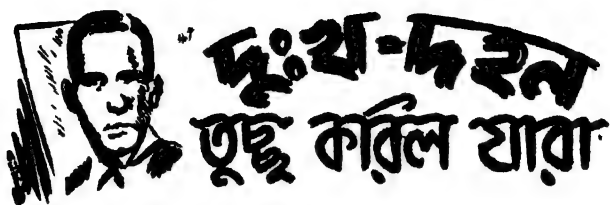 দুঃখ-দহন
তুচ্ছ করিল যারা